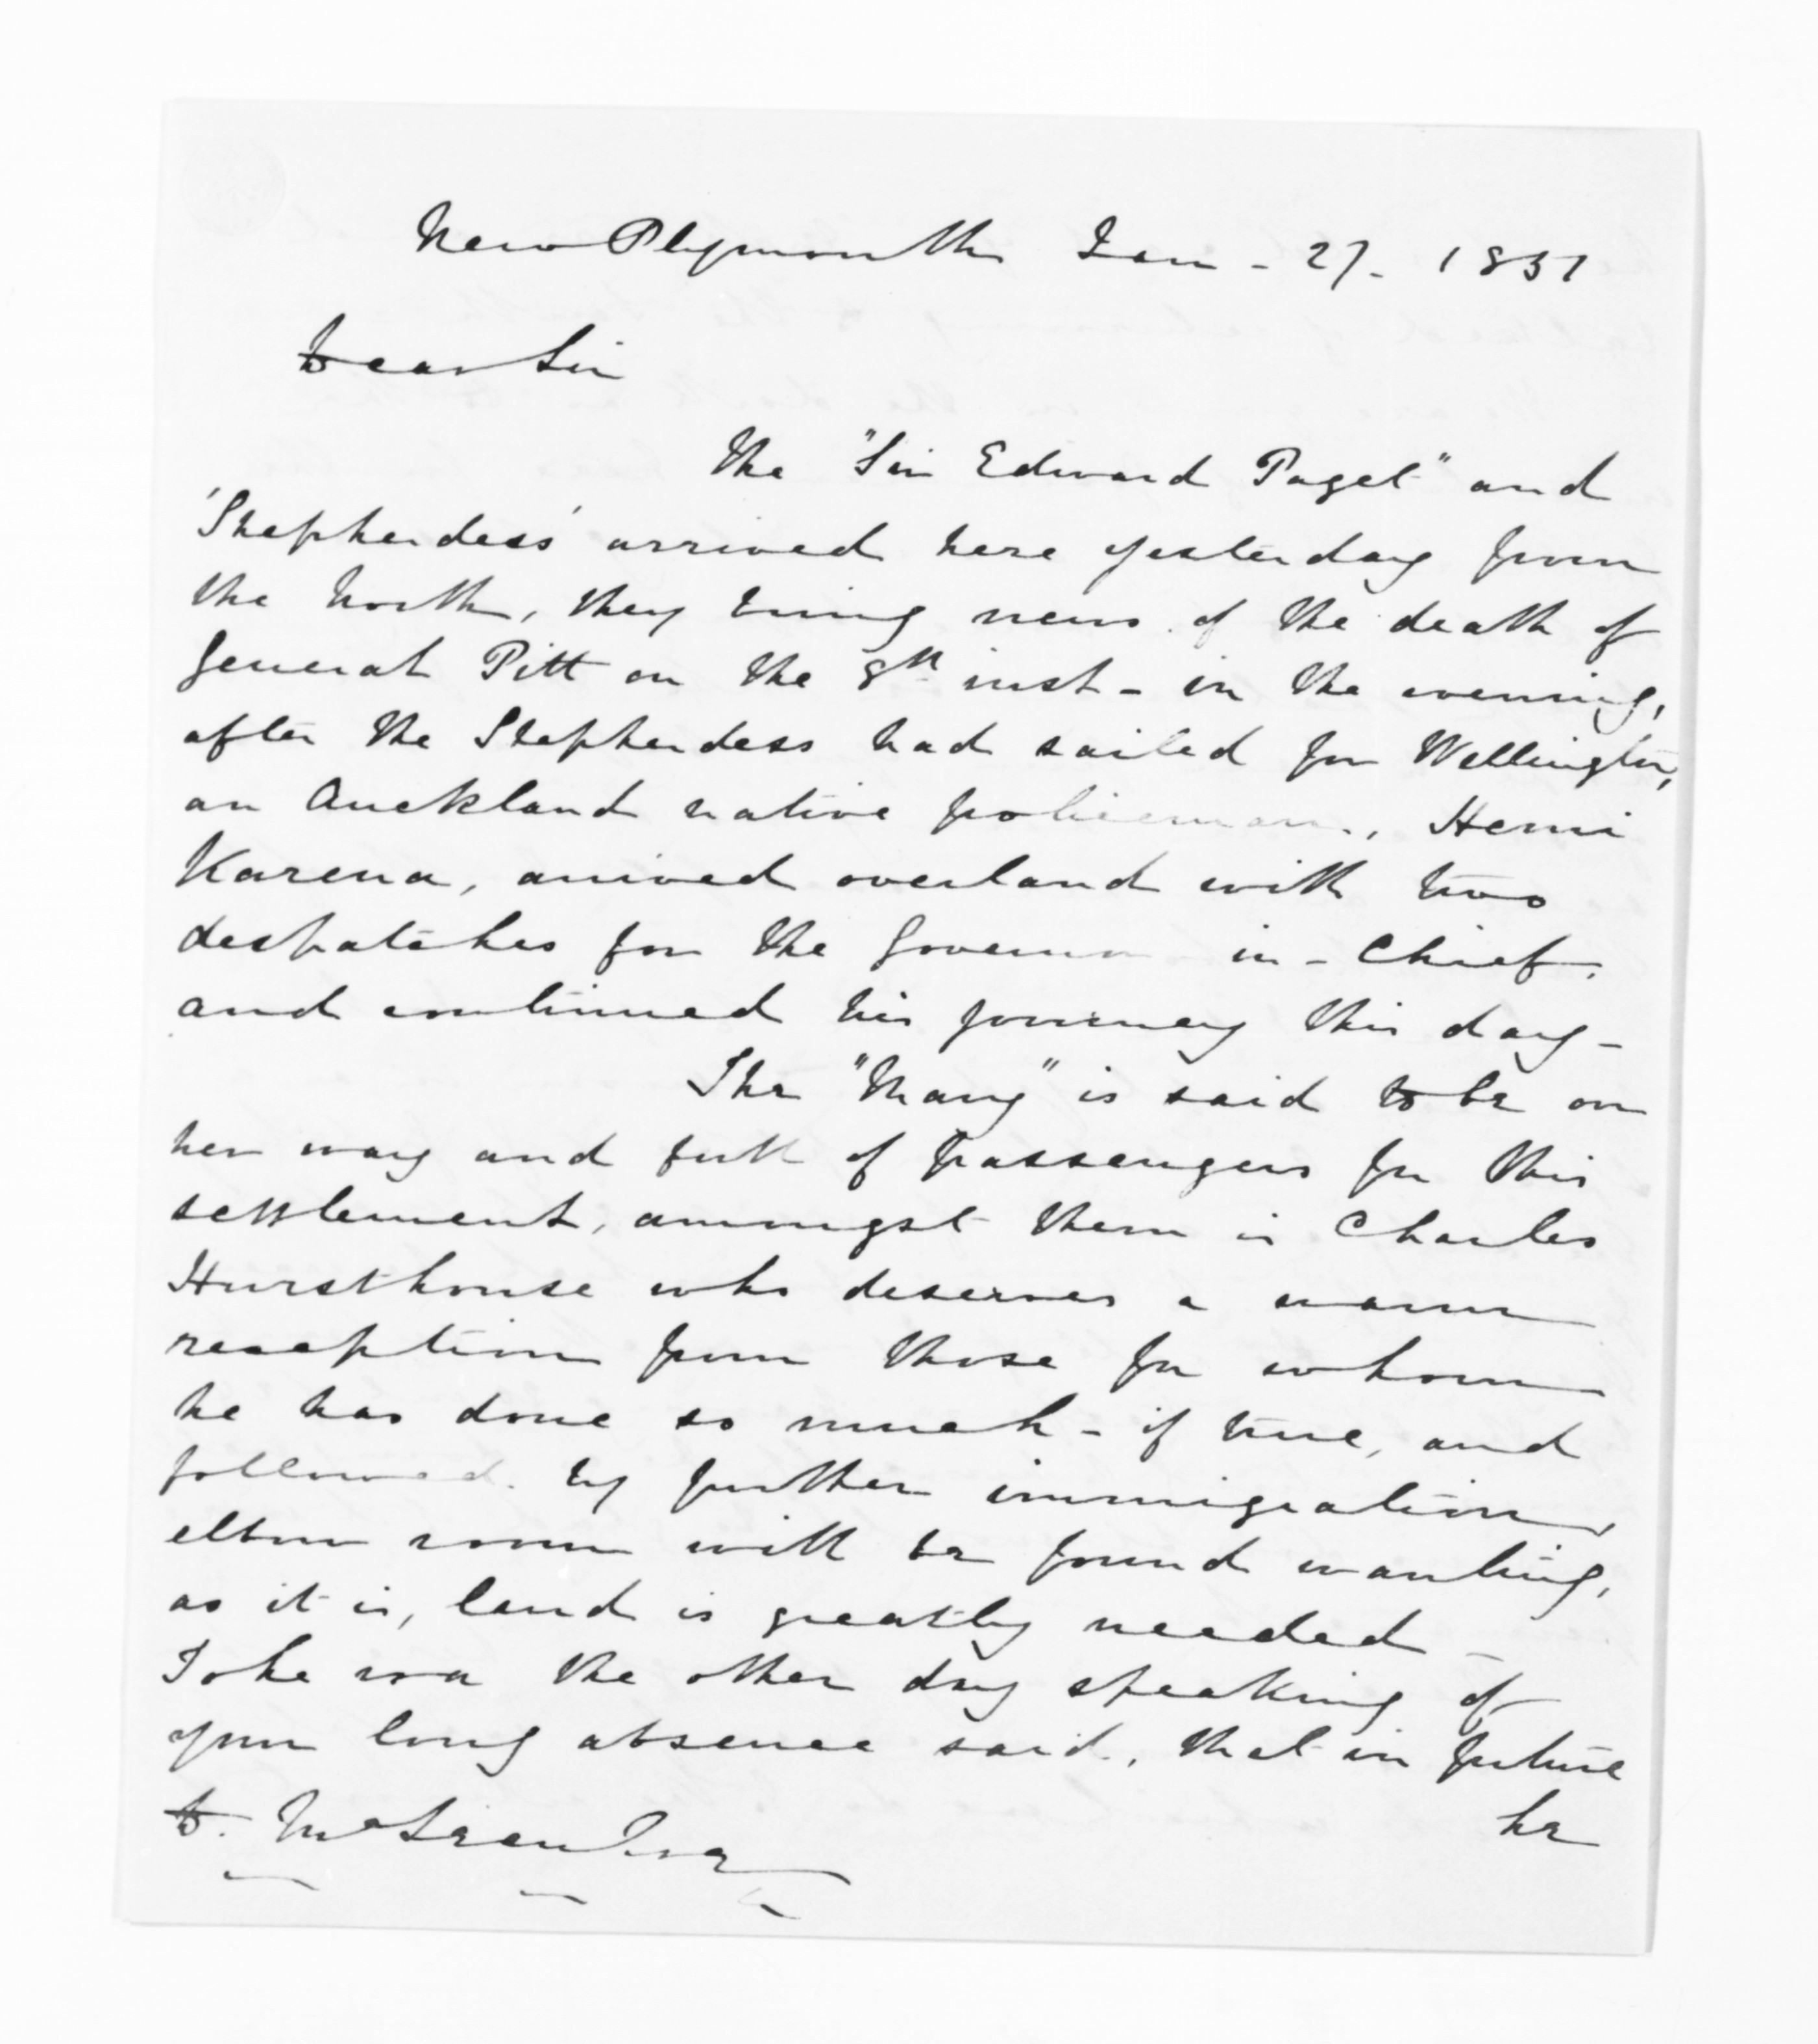 New Plymouth Jan - 27 - 1851
Dear Sir
The "Sir Edward Paget" and
'Shepherdess' arrived here yesterday from
the North, they bring news of the death of
General Pitt on the 8th inst - in the evening,
after the Shepherdess had sailed for Wellington,
an Auckland native policeman, Hemi
Karena, arrived overland with two
despatches for the Governor in - Chief,
and continued his journey this day -
The "Mary" is said to be on
her way and full of passengers for this
settlement, amongst them is Charles
Hursthouse who deserves a warm
reception from those for whom
he has done so much - if true, and
followed by further immigration,
elbow room will be found wanting,
as it is, land is greatly needed -
the other day speaking of
your long absence said, that in future
D. McLean Esq
he